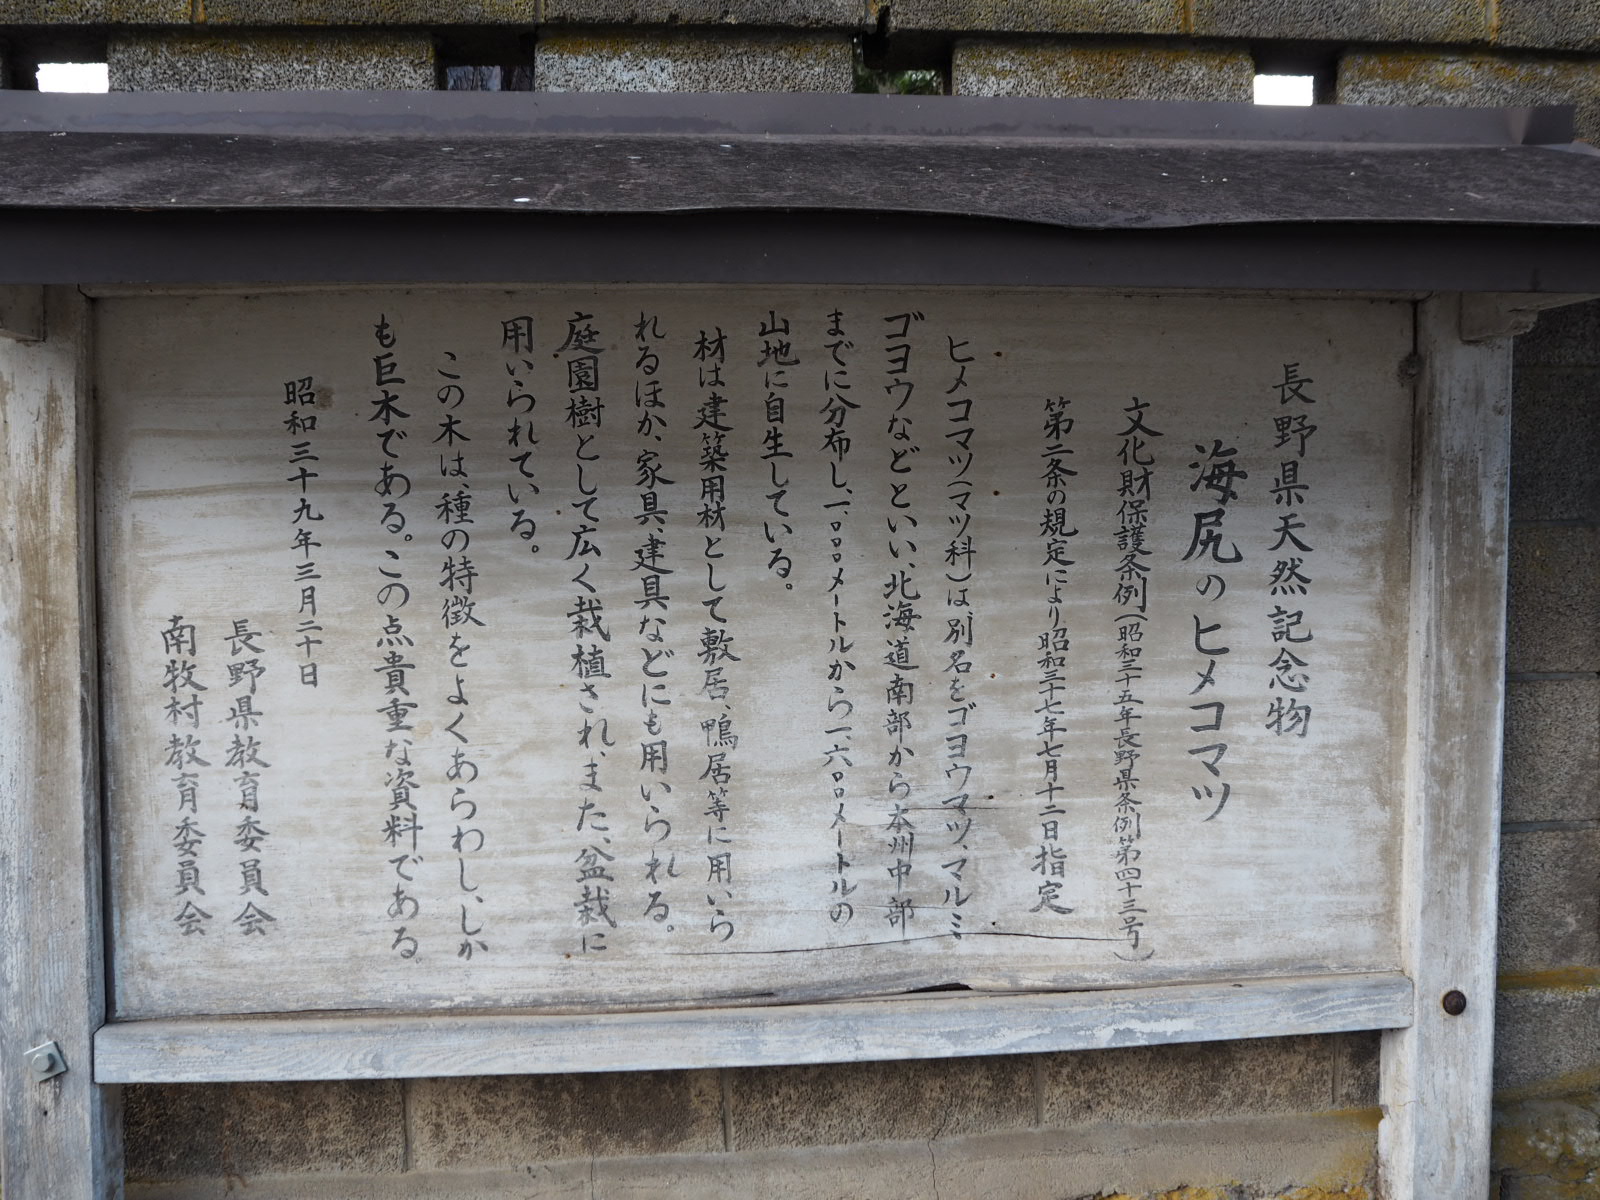 長野県天然記念物
海尻のヒメコマツ
文化財保護条例(昭和三十五年長野県条例第四十三号)
第三条の規定により昭和三十七年七月十二日指定
ヒメコマツ(マツ科)は、別名をゴヨウマツ、マルミ
ゴヨウなどといい、北海道南部から本州中部
までに分布し、一、〇〇〇メートルから一、六〇〇メートルの
山地に自生している。
材は建築用材として敷居、鴨居等に用いら
れるほか、家具、建具などにも用いられる。
庭園樹として広く栽植され、また、盆栽に
用いられている。
この木は、種の特徴をよくあらわし、しか
も巨木である。この点貴重な資料である。
昭和三十九年三月二十日
長野県教育委員会
南牧村教育委員会